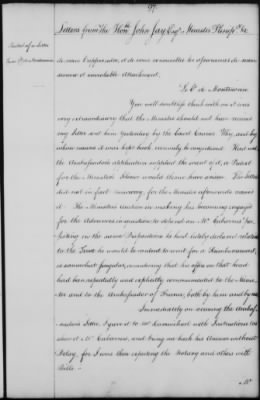 Letters from The Honble John Jay Esqr Minister Plenipo &c
Extract of a Letter
from
de mon Empressement, et de vous renouveller les assurances de mon
sincere et inviolable Attachment.
Le Ct. de Montmorin
You will doubtless think with me it was
very extraordinary that the Minister should not have received
my Letter sent him yesterday by the Court Courier. Why, and by
whose means it was kept back can only be conjectured. Had not
the Ambassadors application extorted the event of it, a Pretext
for the Minister's Silence would thence have arisen. The Letter
did not in fact miscarry, for the Minister afterwards received
it. The Minister's caution in making his becoming engaged
for the Advances in question to depend on Mr Cabarrus'
in the new Propositions he had lately declared relative
to the Time he would be content to wait for a Reimbursement,
is somewhat singular, considering that his offers on that head
had been repeatedly and explicitly communicated to the Minis-
ter and to the Ambassador of France, both by him and by me
Immediately on receiving the Ambas-
sadors Letter I gave it to Mr Carmichael with Instructions to
shew it to Mr Cabarrus, and bring me back his Answer without
Delay, for I was then expecting the Notary and others with
Bills.
Mr